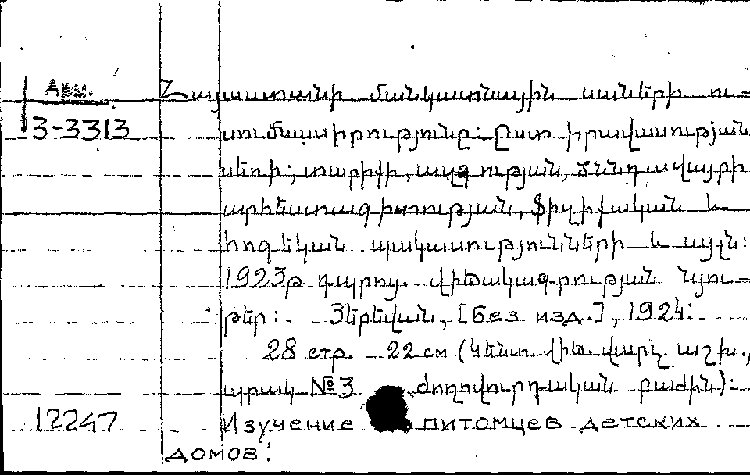 Арм.
Հայաստանի մանկատնային սաների ու-
3-3313
սումնասիրությունը: Ըստ իրավասության
սեռի, տարիքի, ազգության, ծննդավայրի
արհեստագիտության, ֆիզիքական և
հոգեկան պակասությունների և այլն:
1923թ գարող. վիճակագրության նյու-
թեր: Յերեվան, [без изд.], 1924:
28 стр. 22 см (Կենտ վիճ վարչ աշխ.,
պրակ №3 ժողովուրդական բաժին):
12247
Изучение питомцев детских
домов: